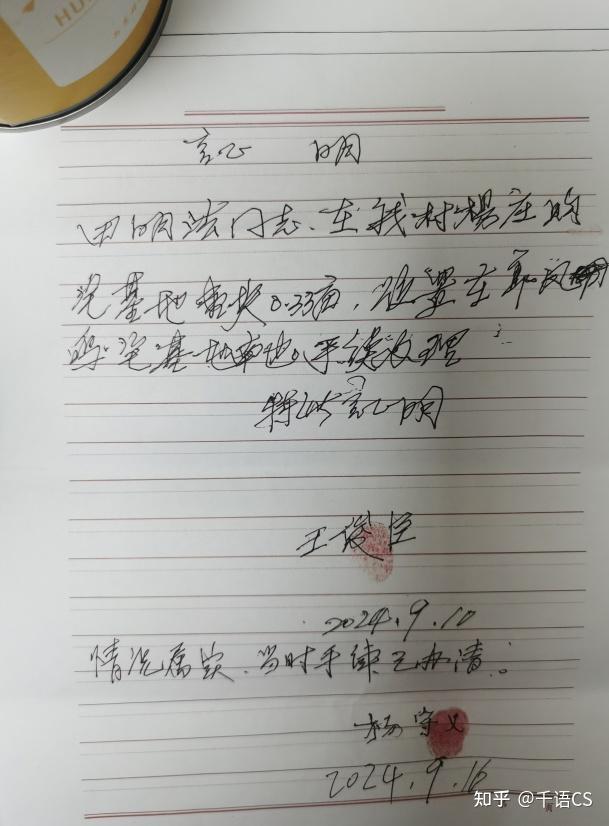 HU
证 明
田明浩同志、在我村杨庄的
宅基地 0.33亩,位置在
宅基地 地。手续办理
特此证明
王俊臣
2024.9.10
情况属实、当时手续已办清。
杨守义
2024.9.16
知乎 @千语CS